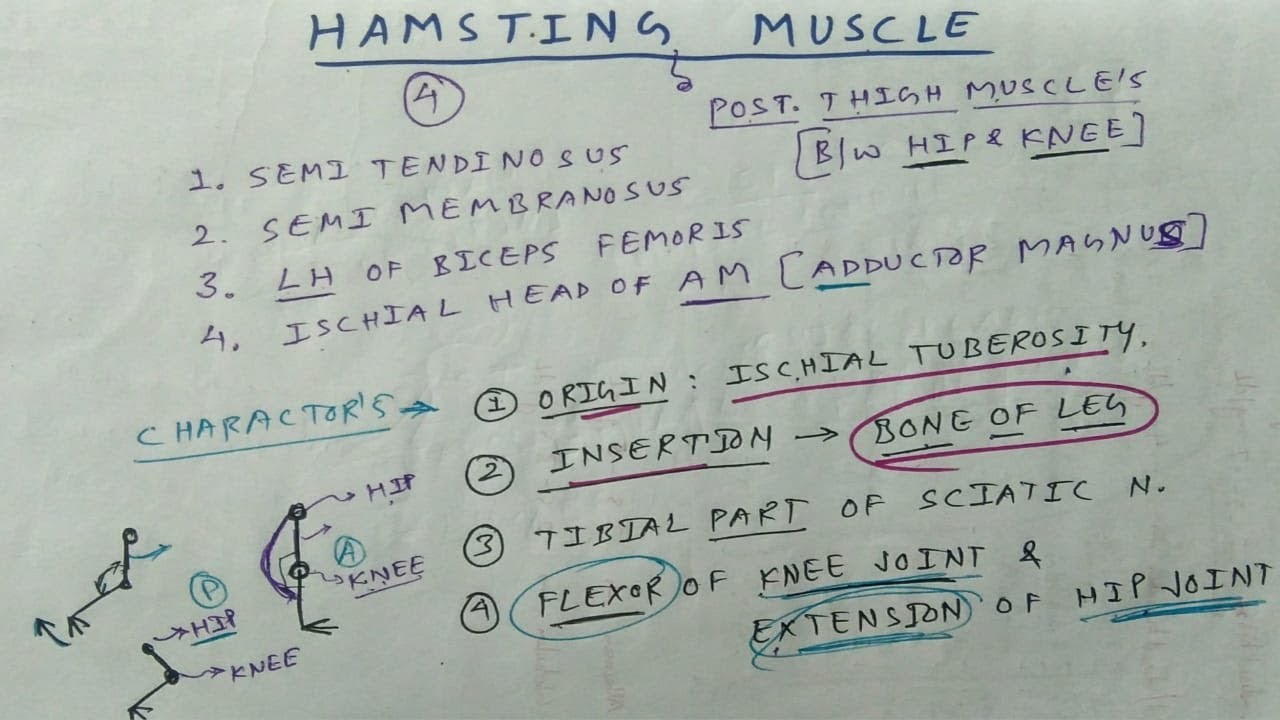 HAMSTING MUSCLE
4
POST. THIGH MUSCLE'S
[B/W HIP & KNEE]
1. SEMI TENDINOSUS
2. SEMI MEMBRANOSUS
3. LH OF BICEPS FEMORIS
4. ISCHIAL HEAD OF AM [ADDUCTOR MAGNUS]
CHARACTOR'S →
① ORIGIN : ISCHIAL TUBEROSITY.
② INSERTION → BONE OF LEG
③ TIBIAL PART OF SCIATIC N.
④ FLEXOR OF KNEE JOINT &
EXTENSION OF HIP JOINT
HIP
A
KNEE
P
HIP
KNEE